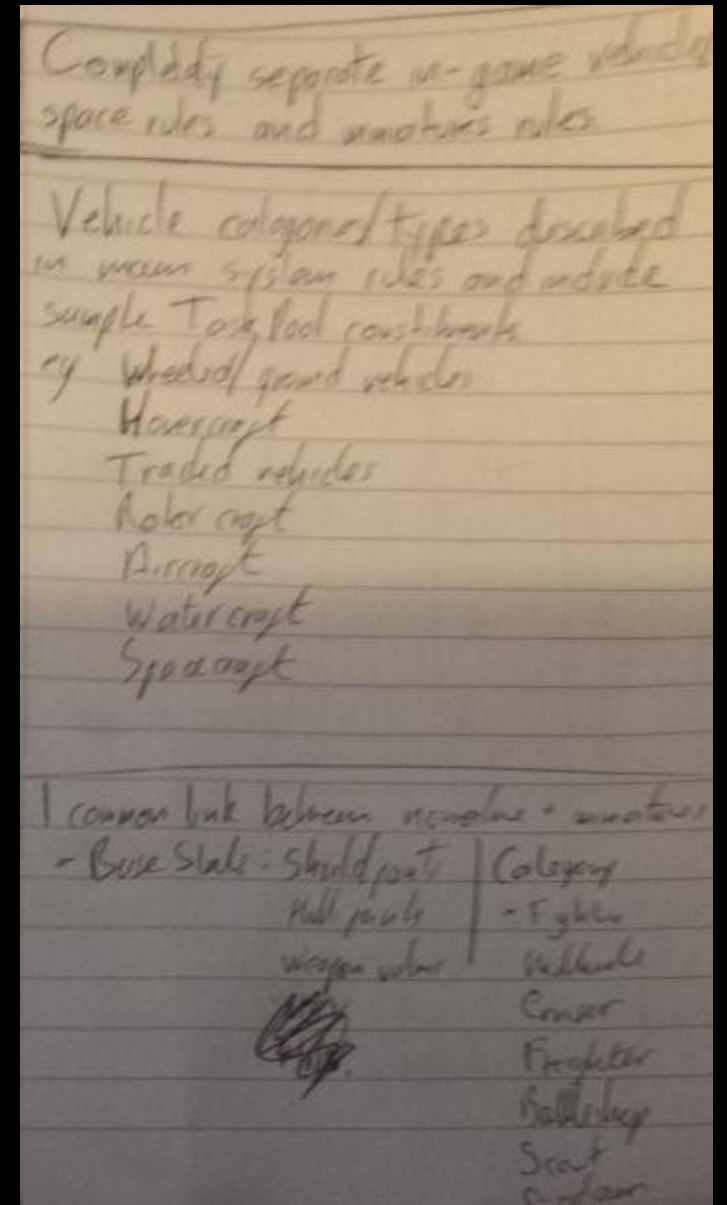 Completely separate in-game vehicle
space rules and miniatures rules
Vehicle categories/types described
in main system rules and include
sample Task Pool constituents
eg Wheeled/ground vehicles
Hovercraft
Tracked vehicles
Rotor craft
Aircraft
Watercraft
Spacecraft
1 common link between narrative + miniatures
- Base Stats: Shield points | Category
Hull points | - Fighter
Weapon values
Cruiser
Freighter
Battleship
Scout